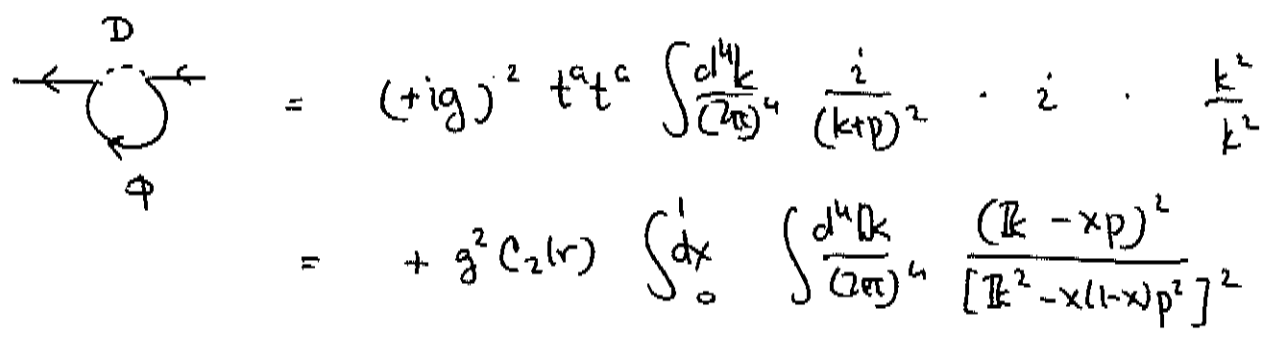 D
= (+ig)² tᵃtᵃ ∫ d⁴k/(2π)⁴ i/(k+p)² · i · k²/k²
Φ
= + g² C₂(r) ∫₀¹ dx ∫ d⁴𝕜/(2π)⁴ (𝕜 - xp)²/[𝕜² - x(1-x)p²]²